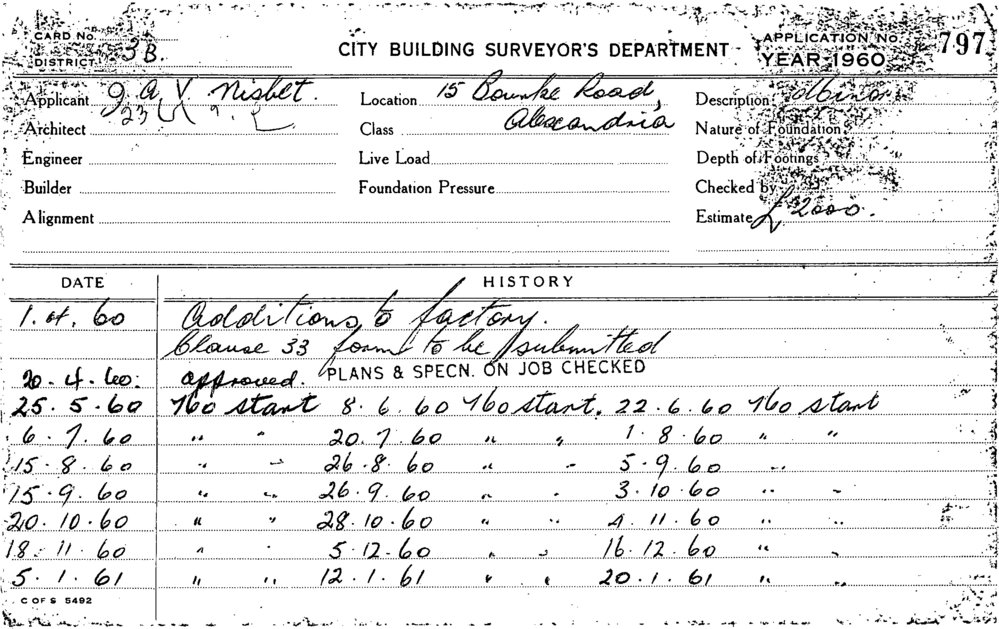 CARD No. CITY BUILDING SURVEYOR'S DEPARTMENT APPLICATION No. 797
DISTRICT 3B. YEAR 1960
Applicant G A V Nisbet. Location 15 Bourke Road, Description
Architect Class Alexandria Nature of Foundation
Engineer Live Load Depth of Footings
Builder Foundation Pressure Checked by
Alignment Estimate £2000.
DATE HISTORY
1. 4. 60 Additions to factory.
Clause 33 form to be submitted
20. 4. 60. approved. PLANS & SPECN. ON JOB CHECKED
25. 5. 60 No start 8. 6. 60 No start. 22. 6. 60 No start
6. 7. 60 " " 20. 7. 60 " " 1. 8. 60 " "
15. 8. 60 " " 26. 8. 60 " " 5. 9. 60 "
15. 9. 60 " " 26. 9. 60 " " 3. 10. 60 " "
20. 10. 60 " " 28. 10. 60 " " 4. 11. 60 " "
18. 11. 60 " " 5. 12. 60 " " 16. 12. 60 " "
5. 1. 61 " " 12. 1. 61 " " 20. 1. 61 " "
C OF S 5492